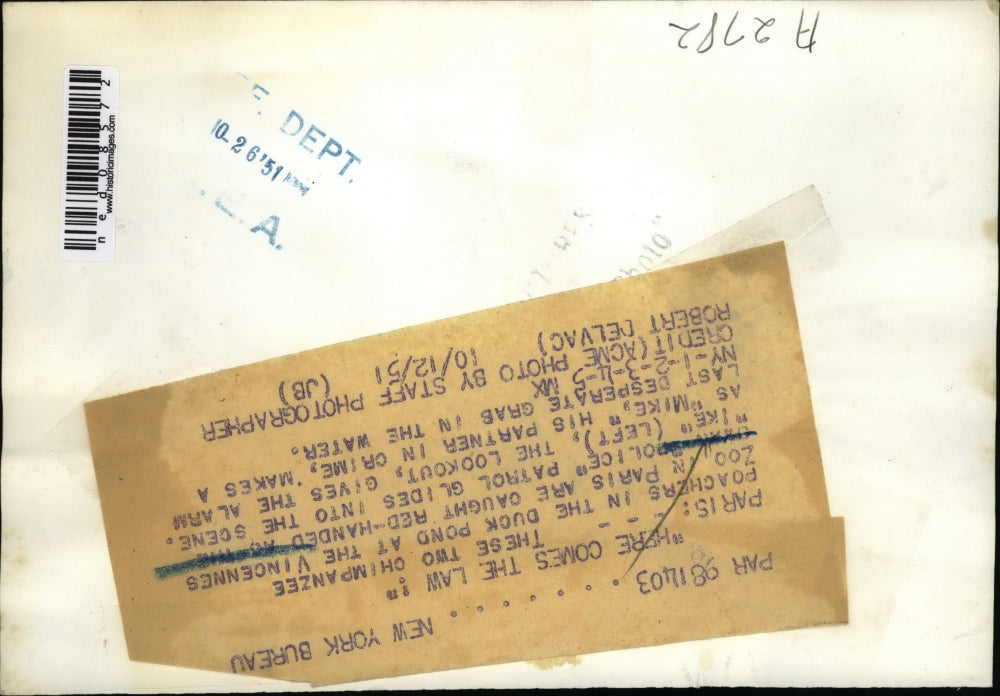 A2782
ned08572
www.historicimages.com
DEPT.
10-26'51
E. A.
PAR NEW YORK BUREAU
"HERE COMES THE LAW :"
PARIS: THESE TWO CHIMPANZEE
POACHERS IN THE DUCK POND AT THE VINCENNES
ZOO IN PARIS ARE CAUGHT RED-HANDED AS THE
"POLICE" PATROL GLIDES INTO THE SCENE.
"IKE" (LEFT), THE LOOKOUT, GIVES THE ALARM
AS "MIKE," HIS PARTNER IN CRIME, MAKES A
LAST DESPERATE GRAB IN THE WATER.
NY-1-2-3-4-5 MK
CREDIT (ACME PHOTO BY STAFF PHOTOGRAPHER
ROBERT DELVAC) 10/12/51 (JB)